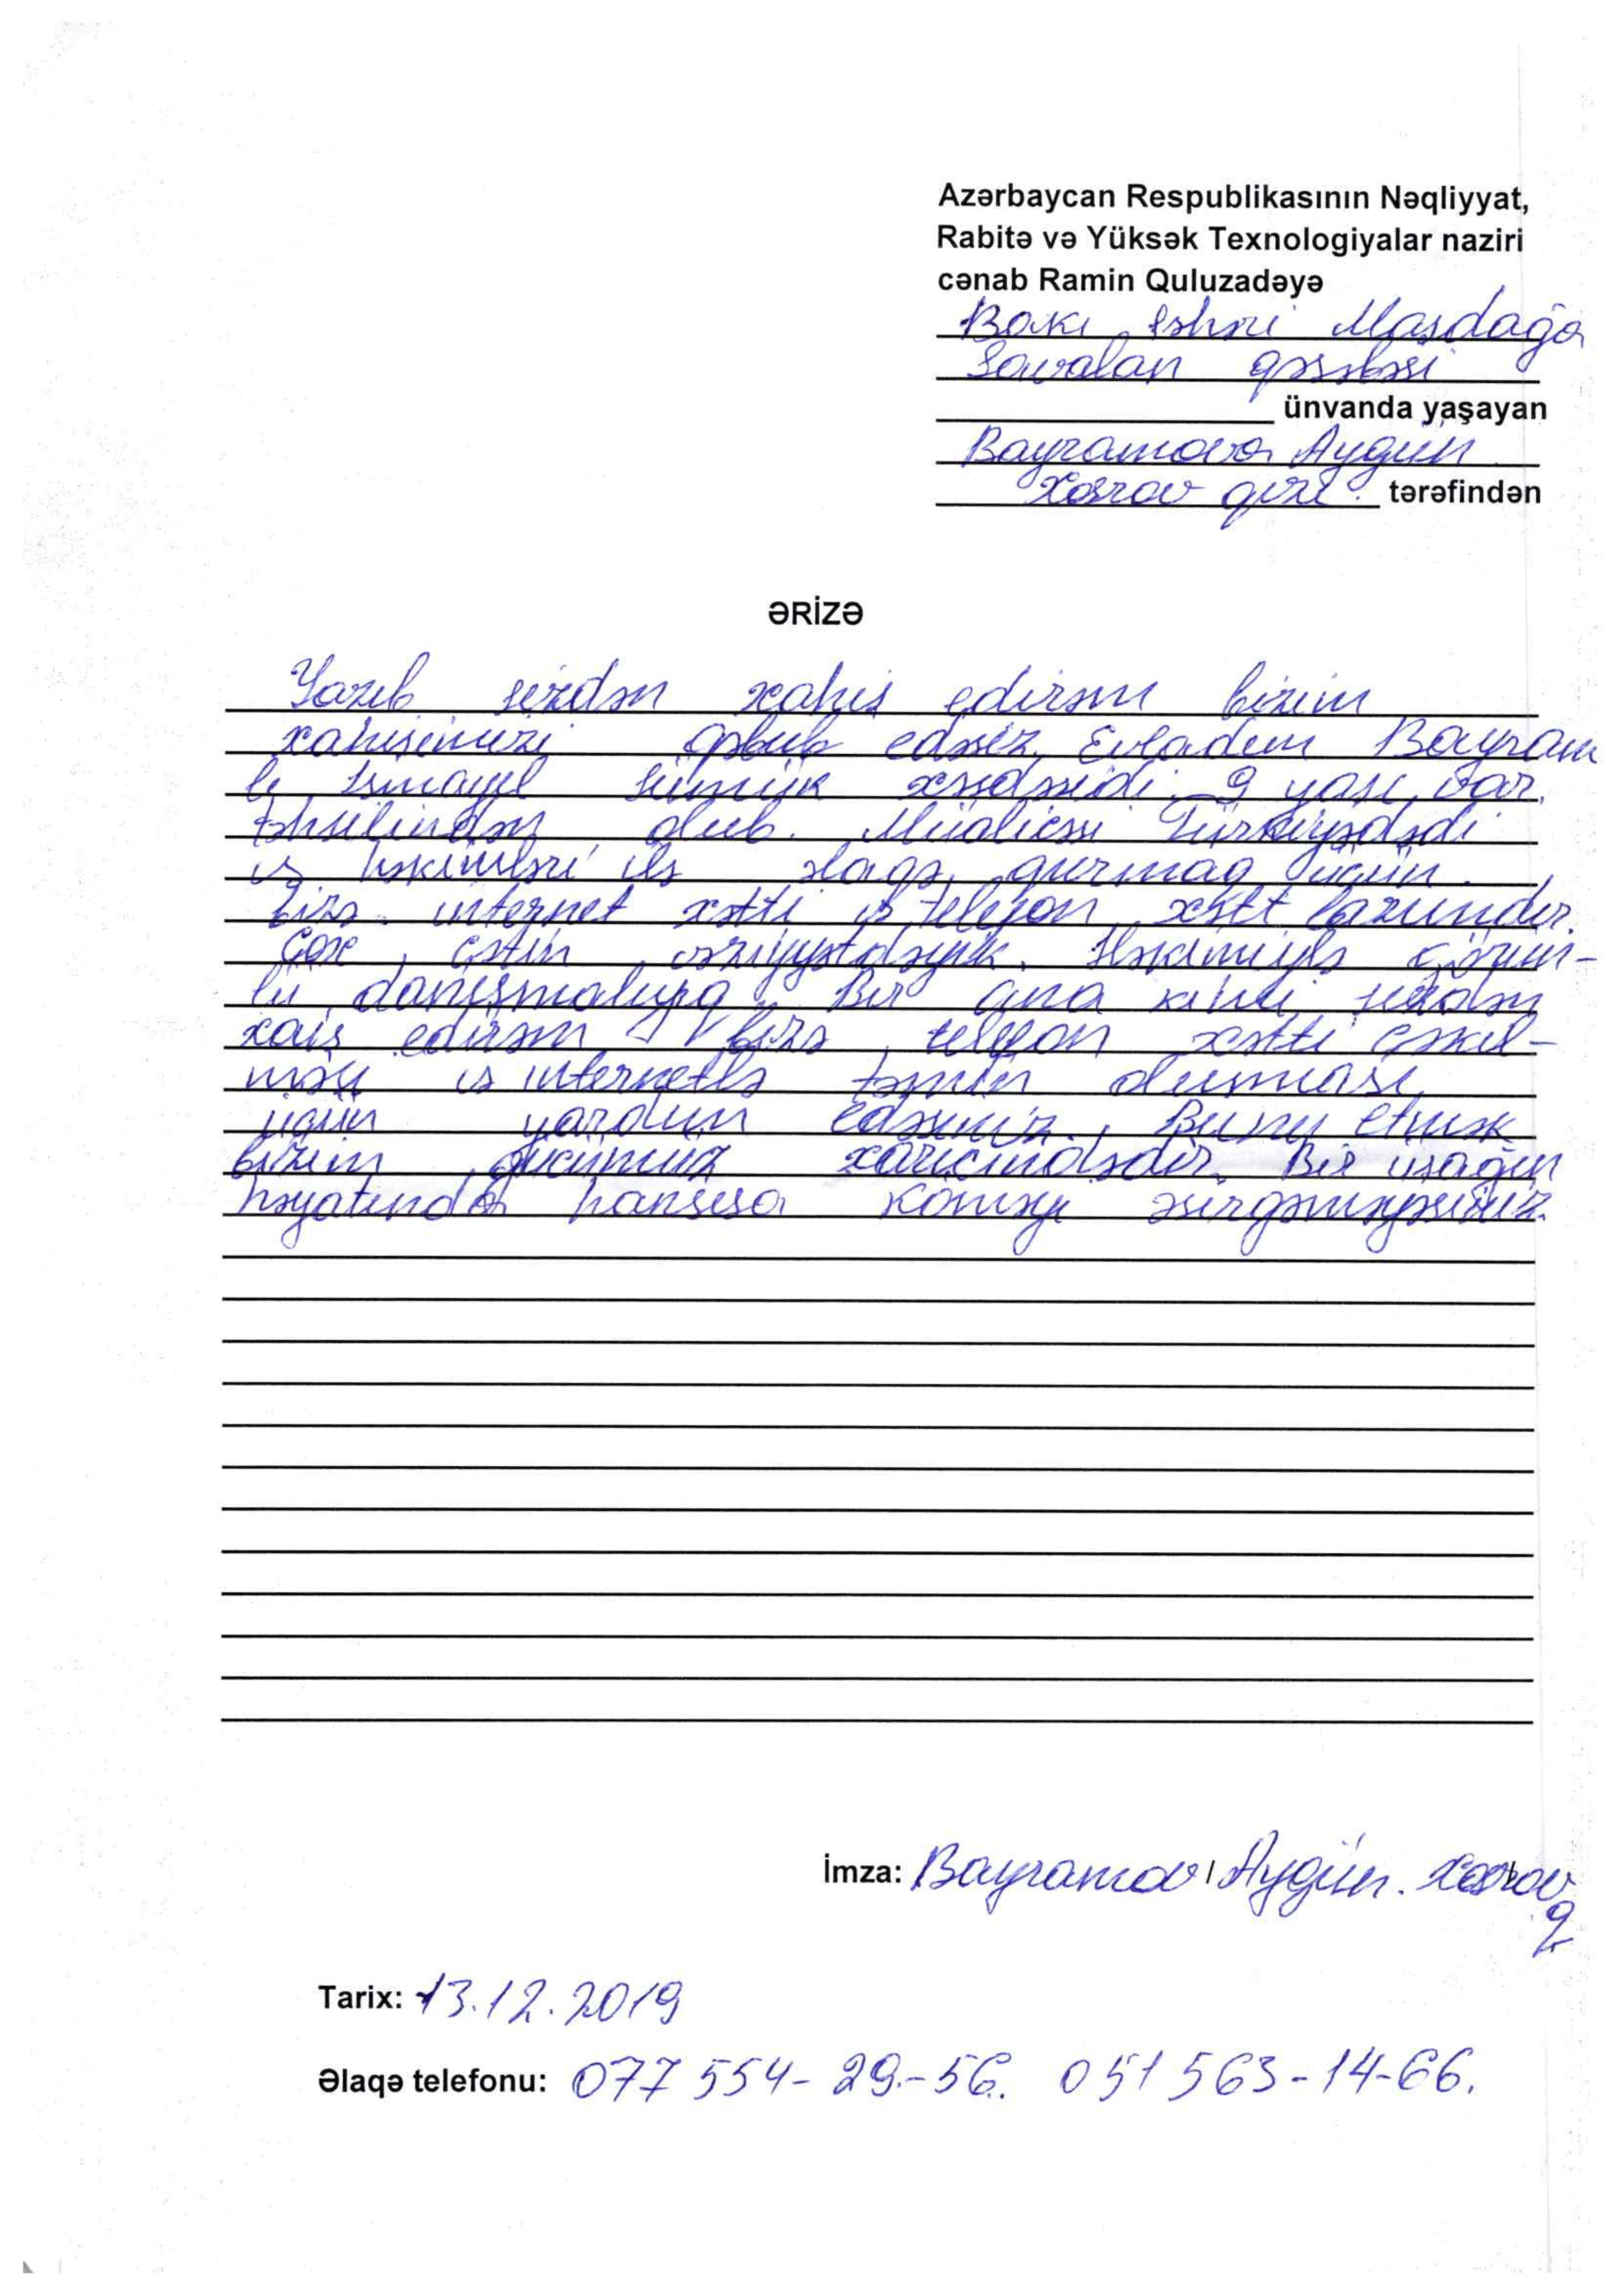 Azərbaycan Respublikasının Nəqliyyat,
Rabitə və Yüksək Texnologiyalar naziri
cənab Ramin Quluzadəyə
Bakı şəhri Maşdağa
Savalan qəsəbəsi
ünvanda yaşayan
Bayramova Aygün
Xosrov qızı. tərəfindən
ƏRİZƏ
Yazıb sizdən xahiş edirəm bizim
xahişimizi qəbul edəsiz. Evladım Bayram
lı İsmayıl sümük xəsdəsidi. 9 yaşı var.
təhsilindən olub. Müalicəsi Türkiyədədi
və həkimləri ilə əlaqə qurmaq üçün.
bizə internet xətti və telefon xətt lazımdır.
Çox çətin vəziyyətdəyik. Həkimiylə görün-
lü danışmalıyıq. Bir ana kimi sizdən
xaiş edirəm bizə telefon xətti çəkil-
məsi və internetlə təmin olunması
üçün yardım edəsiniz. Bunu etmək
bizim gücümüz xaricindədir. Bir uşağın
həyatında hansısa köməyi əsirgəməyəsiniz.
İmza: Bayramov / Aygün. Xosrov
q
Tarix: 13.12.2019
Əlaqə telefonu: 077 554-29-56. 051 563-14-66.